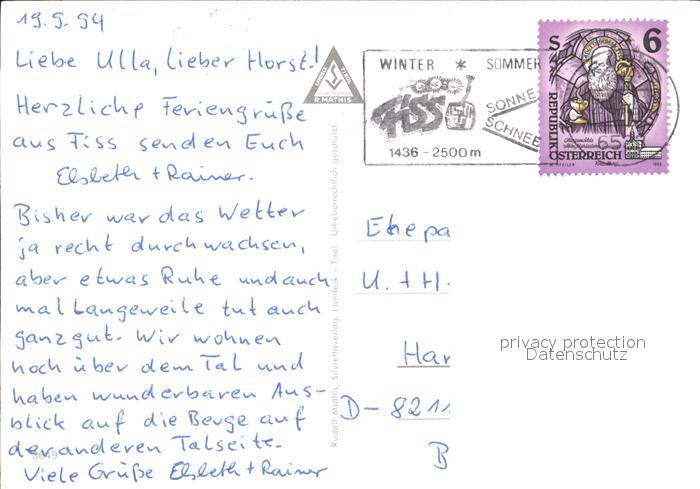 19.9.94
Liebe Ulla, lieber Horst!
Herzliche Feriengrüße
aus Fiss senden Euch
Elsbeth + Rainer.
Bisher war das Wetter
ja recht durchwachsen,
aber etwas Ruhe und auch
mal Langeweile tut auch
ganz gut. Wir wohnen
noch über dem Tal und
haben wunderbaren Aus-
blick auf die Berge auf
der anderen Talseite.
Viele Grüße Elsbeth + Rainer
5649
R. MATHIS
Rudolf Mathis, Silvrettaverlag, Landeck - Tirol. Urheberrechtlich geschützt
WINTER * SOMMER
Fiss
SONNE
SCHNEE
1436 - 2500 m
65
S 6
REPUBLIK
ÖSTERREICH
Ehepa
U. + H.
Har
D- 8211
B
privacy protection
Datenschutz